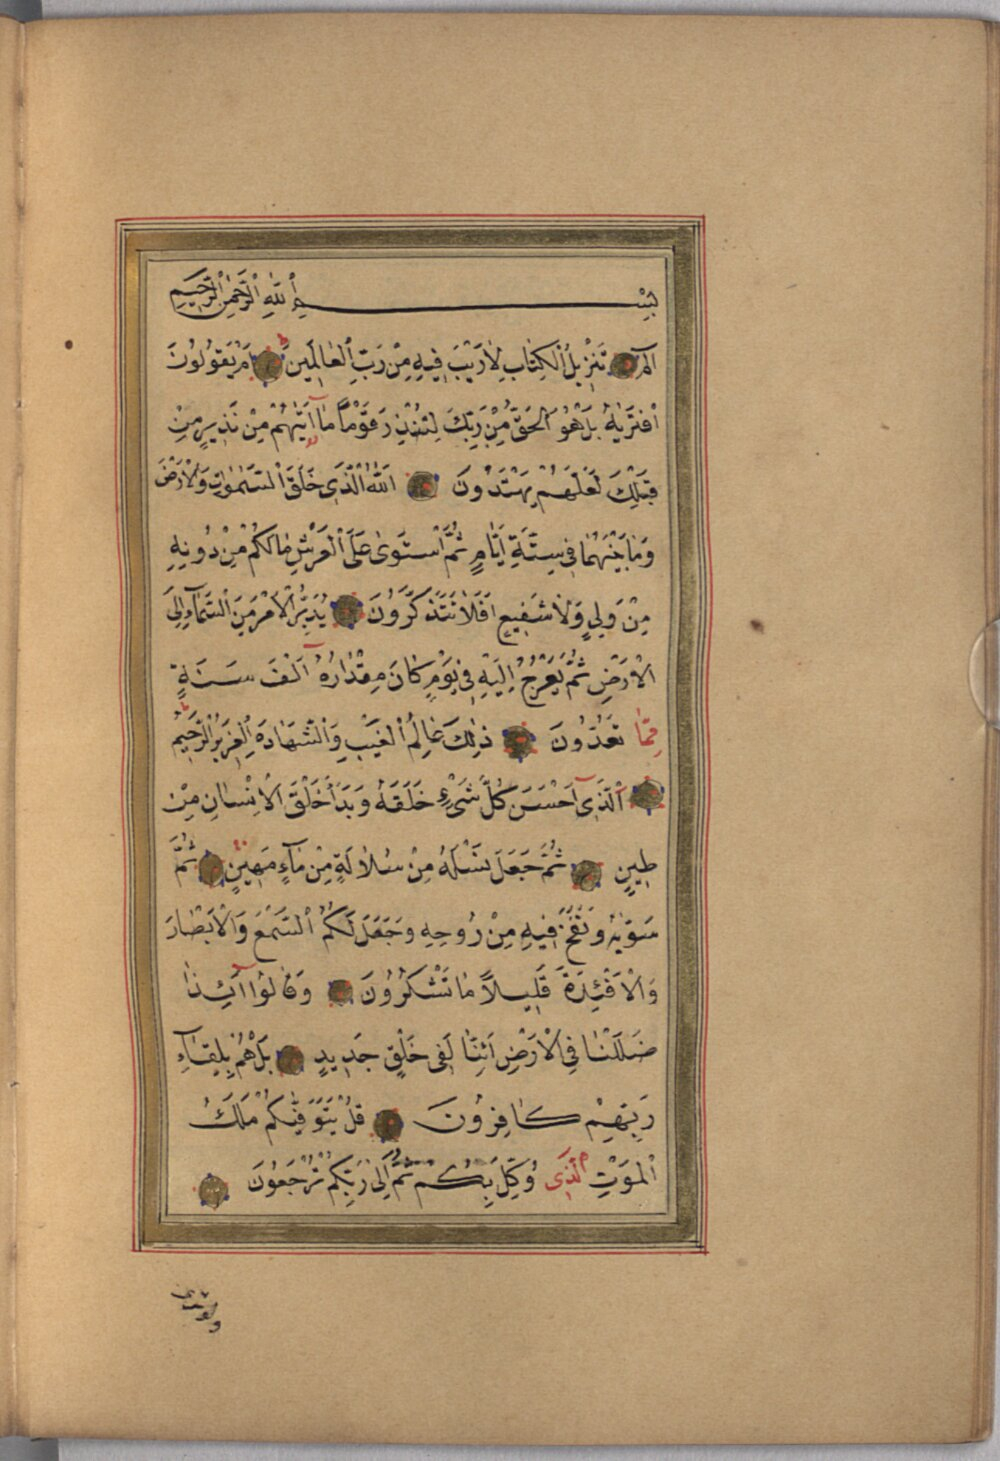 بِسْمِ ٱللّٰهِ ٱلرَّحْمٰنِ ٱلرَّحِيمِ
الٓمٓ تَنْزِيلُ ٱلْكِتَابِ لَا رَيْبَ فِيهِ مِنْ رَبِّ ٱلْعَالَمِينَ اَمْ يَقُولُونَ
افْتَرٰيهُ بَلْ هُوَ ٱلْحَقُّ مِنْ رَبِّكَ لِتُنْذِرَ قَوْمًا مَٓا اَتٰيهُمْ مِنْ نَذِيرٍ مِنْ
قَبْلِكَ لَعَلَّهُمْ يَهْتَدُونَ اَللّٰهُ ٱلَّذِى خَلَقَ ٱلسَّمٰوَاتِ وَٱلْاَرْضَ
وَمَا بَيْنَهُمَا فِى سِتَّةِ اَيَّامٍ ثُمَّ ٱسْتَوٰى عَلَى ٱلْعَرْشِ مَا لَكُمْ مِنْ دُونِهِ
مِنْ وَلِيٍّ وَلَا شَفِيعٍ اَفَلَا تَتَذَكَّرُونَ يُدَبِّرُ ٱلْاَمْرَ مِنَ ٱلسَّمَٓاءِ اِلَى
ٱلْاَرْضِ ثُمَّ يَعْرُجُ اِلَيْهِ فِى يَوْمٍ كَانَ مِقْدَارُهُٓ اَلْفَ سَنَةٍ
مِمَّا تَعُدُّونَ ذٰلِكَ عَالِمُ ٱلْغَيْبِ وَٱلشَّهَادَةِ ٱلْعَزِيزُ ٱلرَّحِيمُ
ٱلَّذِىٓ اَحْسَنَ كُلَّ شَىْءٍ خَلَقَهُ وَبَدَاَ خَلْقَ ٱلْاِنْسَانِ مِنْ
طِينٍ ثُمَّ جَعَلَ نَسْلَهُ مِنْ سُلَالَةٍ مِنْ مَٓاءٍ مَهِينٍ ثُمَّ
سَوّٰيهُ وَنَفَخَ فِيهِ مِنْ رُوحِهِ وَجَعَلَ لَكُمُ ٱلسَّمْعَ وَٱلْاَبْصَارَ
وَٱلْاَفْئِدَةَ قَلِيلًا مَا تَشْكُرُونَ وَقَالُوٓا اَئِذَا
ضَلَلْنَا فِى ٱلْاَرْضِ اَئِنَّا لَفِى خَلْقٍ جَدِيدٍ بَلْ هُمْ بِلِقَٓاءِ
رَبِّهِمْ كَافِرُونَ قُلْ يَتَوَفّٰيكُمْ مَلَكُ
ٱلْمَوْتِ ٱلَّذِى وُكِّلَ بِكُمْ ثُمَّ اِلٰى رَبِّكُمْ تُرْجَعُونَ
ولوترى